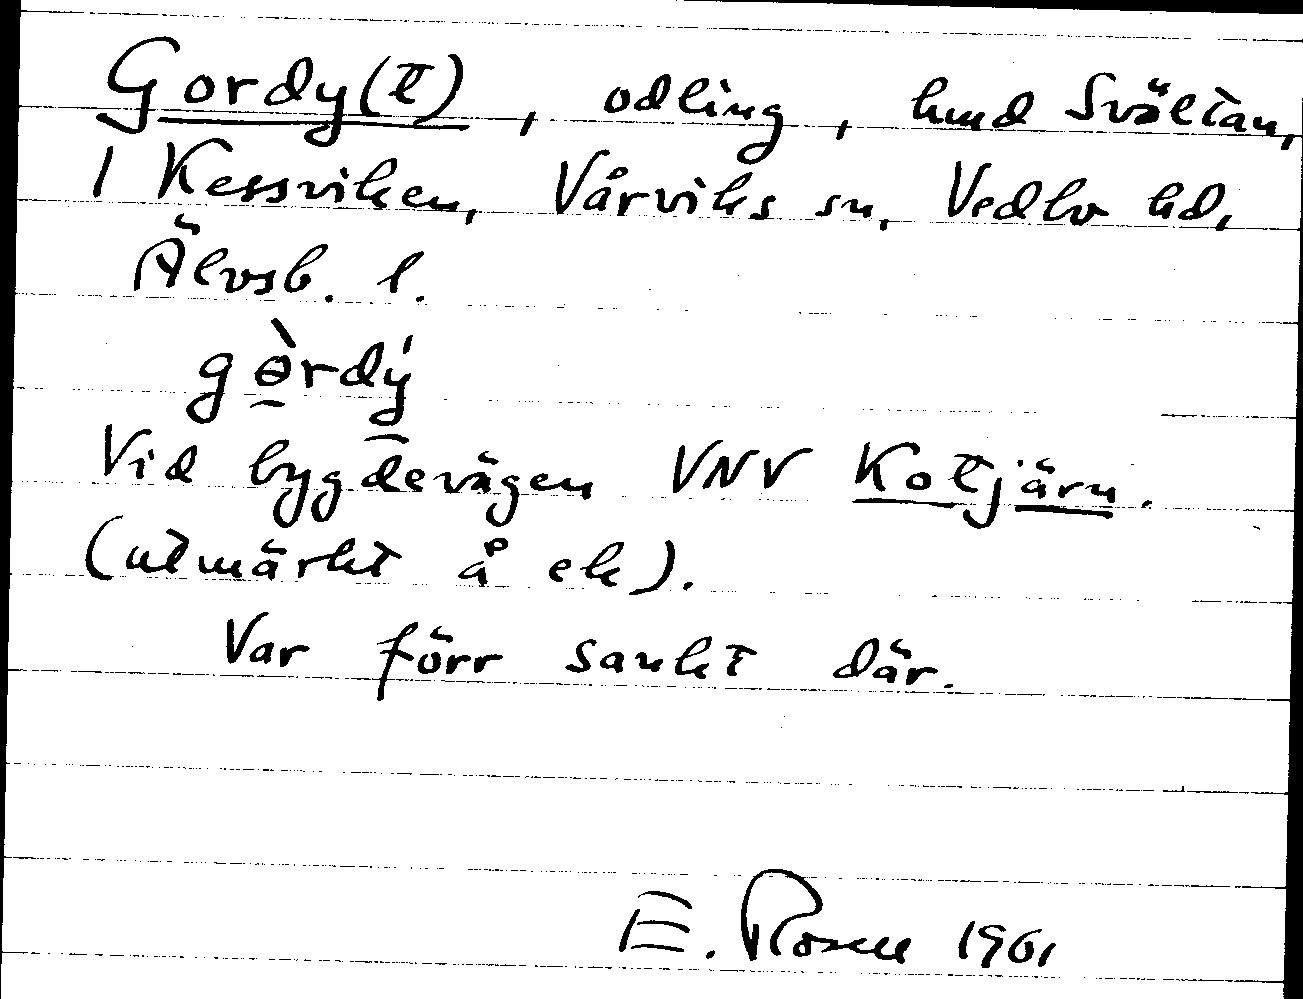 Gordy(t), odling, hmd Svältan,
1 Kessviken, Vårviks sn, Vedbo hd,
Älvsb. l.
gɵ̀rdý
Vid bygdevägen VNV Kotjärn.
(utmärkt å ek).
Var förr sankt där.
E. Rosell 1961